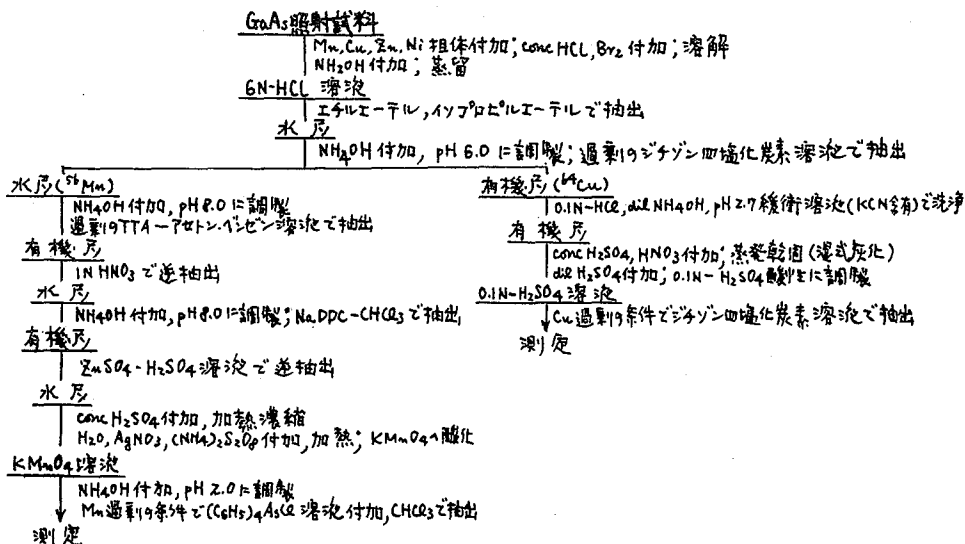 GaAs照射試料
Mn, Cu, Zn, Ni 担体付加; conc HCl, Br₂ 付加; 溶解
NH₂OH 付加; 蒸留
6N-HCl 溶液
エチルエーテル, イソプロピルエーテルで抽出
水層
NH₄OH 付加, pH 6.0 に調製; 過剰のジチゾン四塩化炭素溶液で抽出
水層(⁵⁶Mn)
NH₄OH 付加, pH 8.0 に調製
過剰のTTA-アセトン・ベンゼン溶液で抽出
有機層
1N HNO₃ で逆抽出
水層
NH₄OH 付加, pH 8.0 に調製; Na.DDC-CHCl₃ で抽出
有機層
ZnSO₄-H₂SO₄ 溶液で逆抽出
水層
conc H₂SO₄ 付加, 加熱濃縮
H₂O, AgNO₃, (NH₄)₂S₂O₈ 付加, 加熱; KMnO₄へ酸化
KMnO₄ 溶液
NH₄OH 付加, pH 2.0 に調製
Mn 過剰の条件で (C₆H₅)₄AsCl 溶液付加, CHCl₃ で抽出
測定
有機層(⁶⁴Cu)
0.1N-HCl, dil NH₄OH, pH 2.7 緩衝溶液(KCN含有)で洗浄
有機層
conc H₂SO₄, HNO₃ 付加; 蒸発乾固 (湿式灰化)
dil H₂SO₄ 付加; 0.1N-H₂SO₄ 酸性に調製
0.1N-H₂SO₄ 溶液
Cu 過剰の条件でジチゾン四塩化炭素溶液で抽出
測定